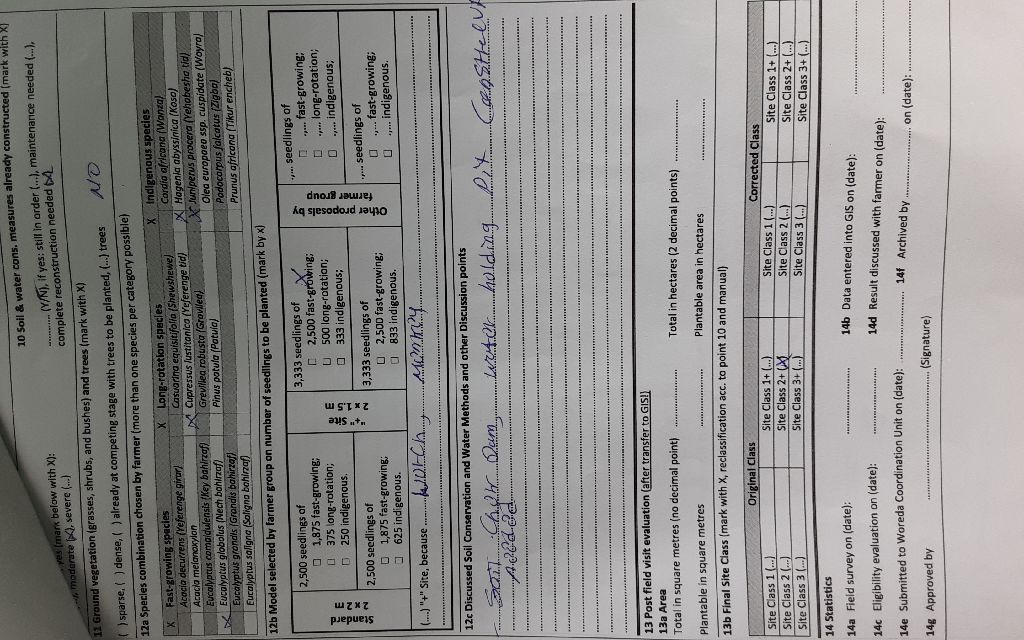 10 Soil & water cons. measures already constructed (mark with X)
yes (mark below with X): ......... (Y/N), if yes: still in order (...), maintenance needed (...),
moderate (X), severe (...) complete reconstruction needed (X)
11 Ground vegetation (grasses, shrubs, and bushes) and trees (mark with X)
( ) sparse, ( ) dense, ( ) already at competing stage with trees to be planted, (...) trees NO
12a Species combination chosen by farmer (more than one species per category possible)
X Fast-growing species X Long-rotation species X Indigenous species
Acacia decurrens (Yeferenge girar) Casuarina equistifolia (Shewshewe) Cordia africana (Wanza)
Acacia melanoxylon X Cupressus lustitanica (Yeferenge tid) X Hagenia abyssinica (Koso)
Eucalyptus camaldulensis (Key bahirzaf) Grevillea robusta (Gravilea) X Juniperus procera (Yehabesha tid)
Eucalyptus globolus (Nech bahirzaf) Pinus patula (Patula) Olea europaea ssp. cuspidate (Woyra)
X Eucalyptus grandis (Grandis bahirzaf) Podocarpus falcatus (Zigba)
Eucalyptus saligna (Saligna bahirzaf) Prunus africana (Tikur encheb)
12b Model selected by farmer group on number of seedlings to be planted (mark by x)
Standard 2 x 2 m
2,500 seedlings of
□ 1,875 fast-growing;
□ 375 long-rotation;
□ 250 indigenous.
2,500 seedlings of
□ 1,875 fast-growing;
□ 625 indigenous.
"+" Site 2 x 1.5 m
3,333 seedlings of X
□ 2,500 fast-growing;
□ 500 long-rotation;
□ 333 indigenous;
3,333 seedlings of
□ 2,500 fast-growing;
□ 833 indigenous.
Other proposals by farmer group
.,... seedlings of
□ .,... fast-growing;
□ .,... long-rotation;
□ .,... indigenous;
.,... seedlings of
□ .,... fast-growing;
□ .,... indigenous.
(...) "+" Site, because
12c Discussed Soil Conservation and Water Methods and other Discussion points
Dam, water holding Pit
needed
13 Post field visit evaluation (after transfer to GIS)
13a Area
Total in square metres (no decimal point) .......... Total in hectares (2 decimal points) ..........
Plantable in square metres .......... Plantable area in hectares ..........
13b Final Site Class (mark with X, reclassification acc. to point 10 and manual)
Original Class Corrected Class
Site Class 1 (...) Site Class 1+ (...) Site Class 1 (...) Site Class 1+ (...)
Site Class 2 (...) Site Class 2+ (X) Site Class 2 (...) Site Class 2+ (...)
Site Class 3 (...) Site Class 3+ (...) Site Class 3 (...) Site Class 3+ (...)
14 Statistics
14a Field survey on (date): .......... 14b Data entered into GIS on (date): ..........
14c Eligibility evaluation on (date): .......... 14d Result discussed with farmer on (date): ..........
14e Submitted to Woreda Coordination Unit on (date): .......... 14f Archived by .......... on (date): ..........
14g Approved by .......... (Signature)